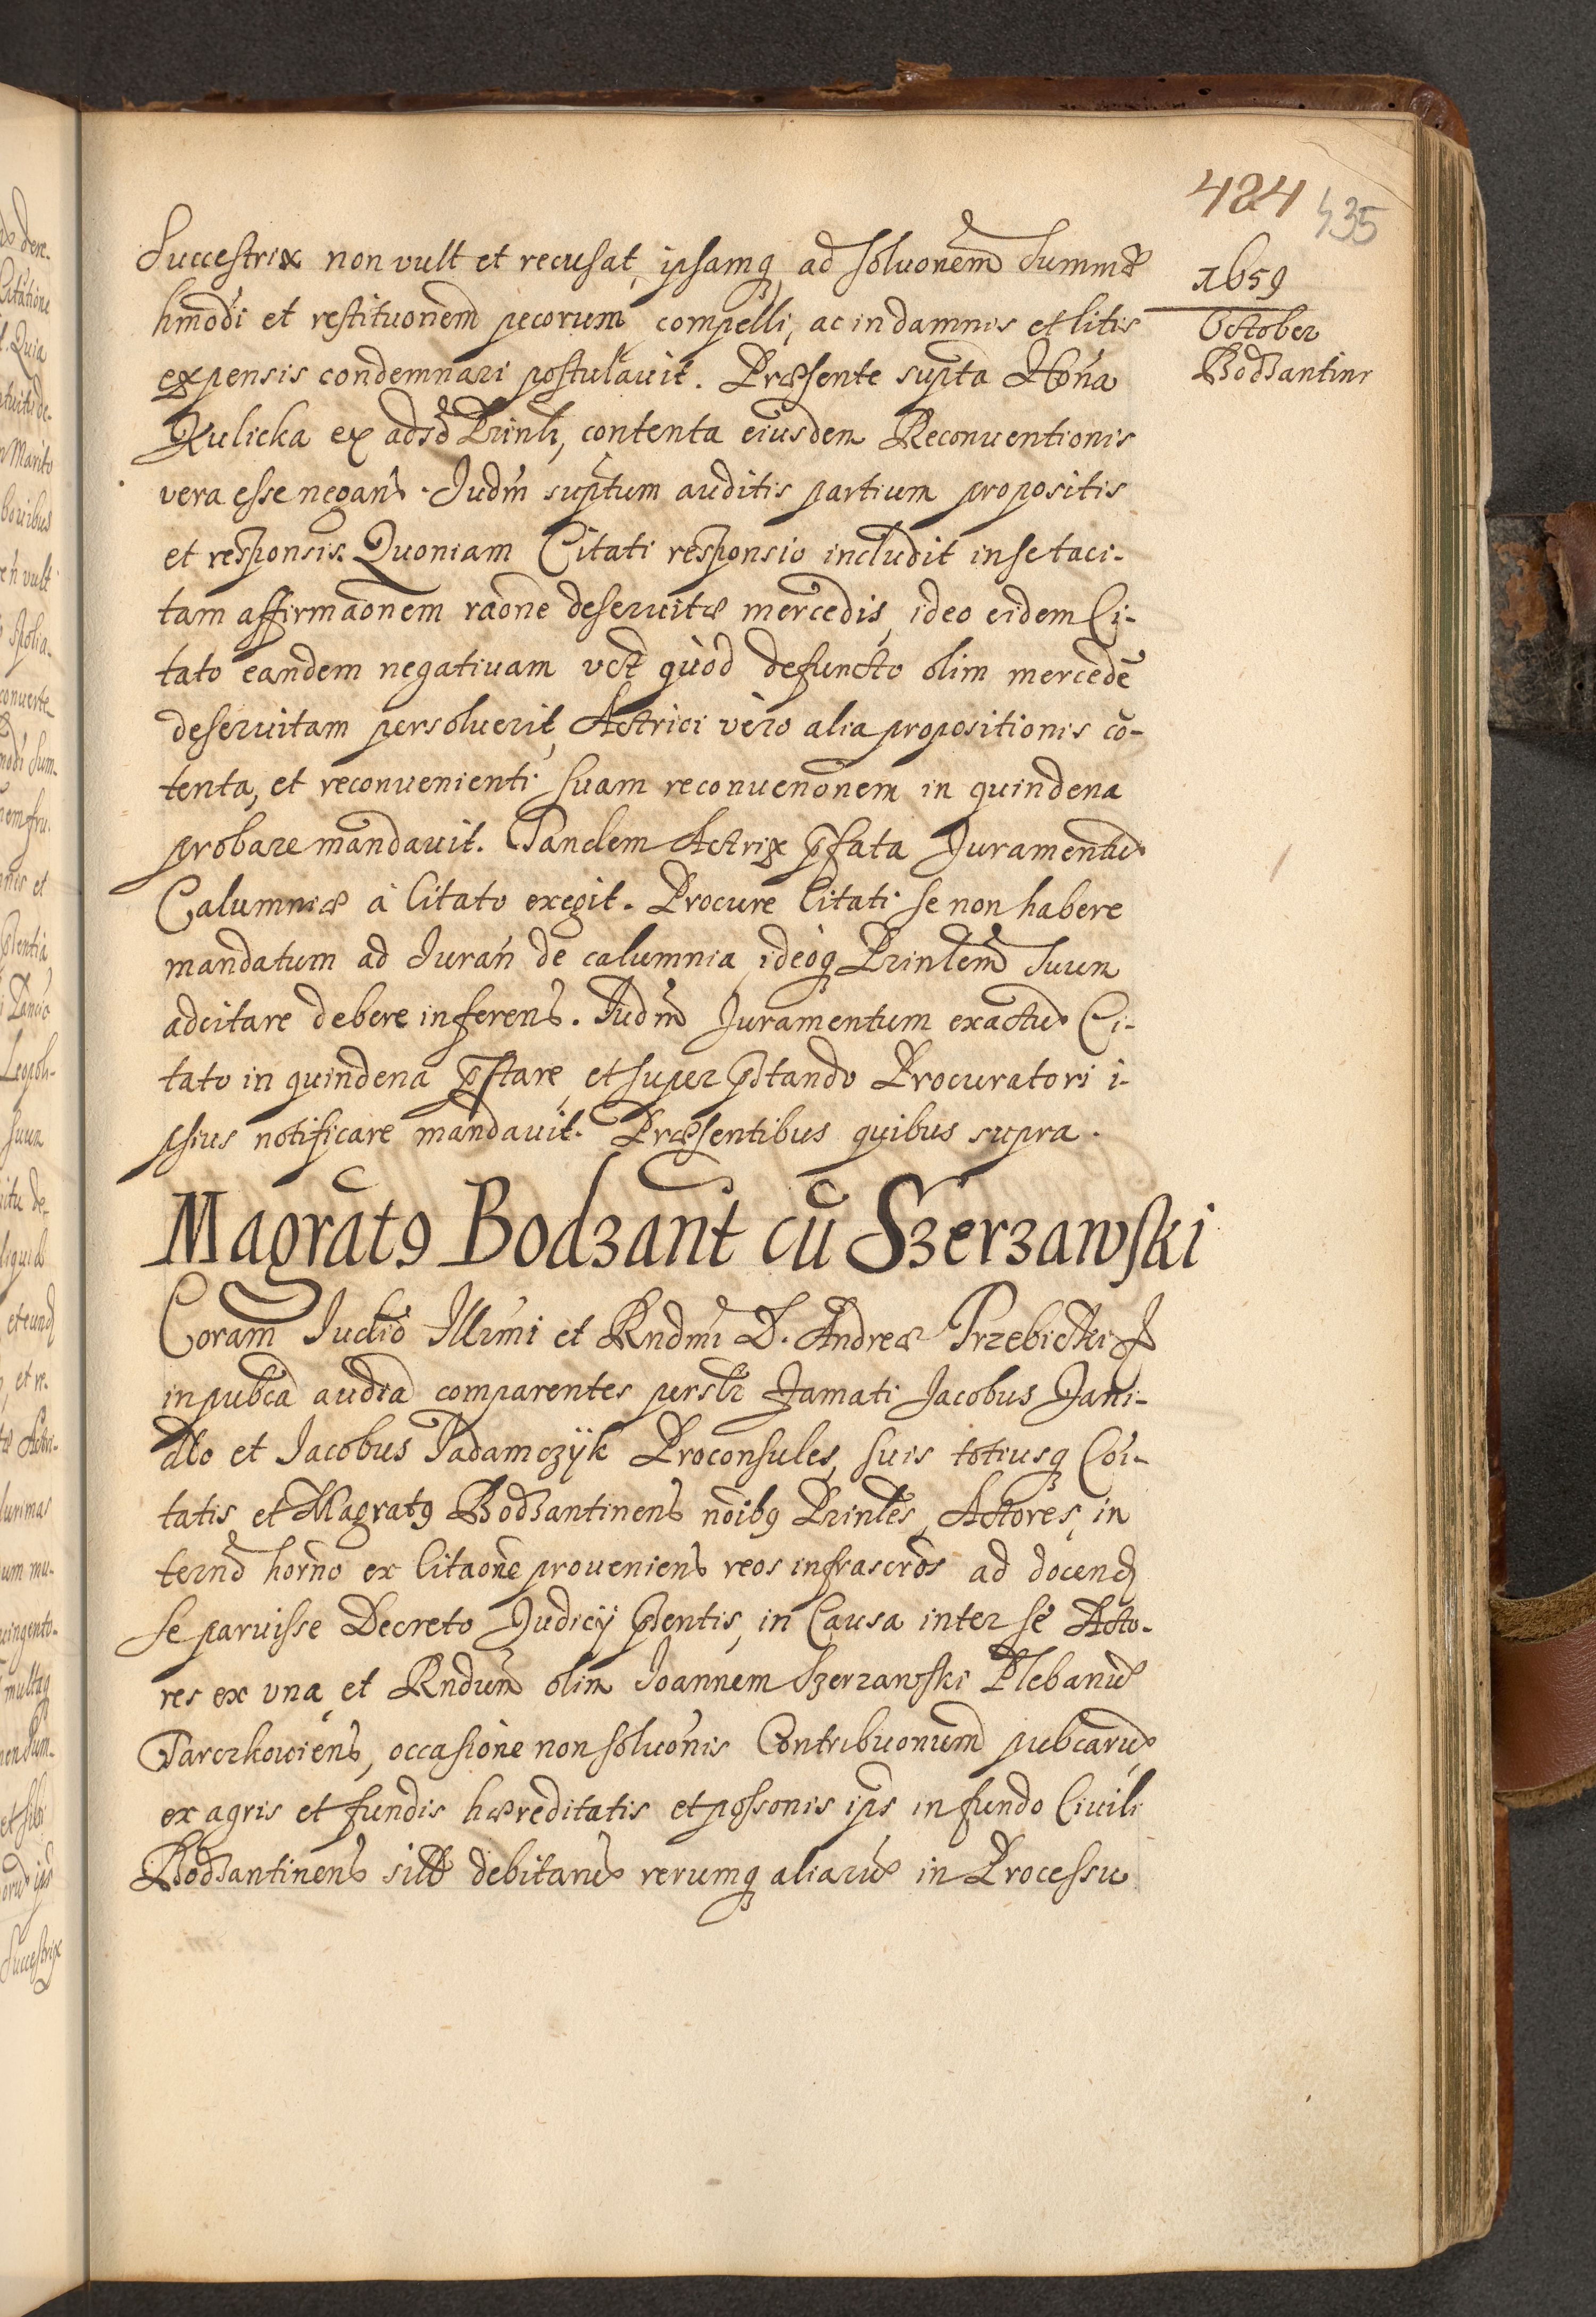 484 435
1659
October
Bodzantini
Succestrix non vult et recusat, ipsamq ad solvonem Summæ
hmodi et restituonem pecorum compelli, ac in damnis et litis
expensis condemnari postulauit. Præsente supta Hona
Kulicka ex adso Prinli, contenta eiusdem Reconuentionis
vera esse negans. Judm suptum auditis partium propositis
et responsis. Quoniam Citati responsio includit in se taci-
tam affirmaonem raone deseruitæ mercedis, ideo eidem Ci-
tato eandem negatiuam vct quod defuncto olim mercede
deseruitam persoluerit, Actrici vero alia propositionis co-
tenta, et reconvenienti suam reconuenonem in quindena
probare mandauit. Tandem Actrix pfata Juramentum
Calumniæ à Citato exegit. Procure Citati se non habere
mandatum ad Juran de calumnia, ideoq Prinlem suum
adcitare debere inferens. Judm Juramentum exactum Ci-
tato in quindena pstare, et super pstando Procuratori i-
psius notificare mandauit. Præsentibus quibus supra.
Magrat9 Bodzant cū Szerzawski
Coram Judio Illrmi et Rndmi D. Andreæ Trzebicki
in pubca audia comparentes persli Famati Jacobus Jani-
dło et Jacobus Padamczÿk Proconsules, suis totiusq Coi-
tatis et Magrat9 Bodzantinens noib9 Prinles, Actores, in
termo horno ex Citaone proueniens reos infrascros ad docend
se paruisse Decreto Judicij psentis, in Causa inter se Acto-
res ex vna, et Rndum olim Joannem Szerzawski Plebanum
Tarczkouiens, occasione non soluonis Contribuonum pubcarum
ex agris et fundis hæreditatis et possonis ips in fundo Ciuili
Bodzantinens sitt debitarum rerumq aliarum in Processu